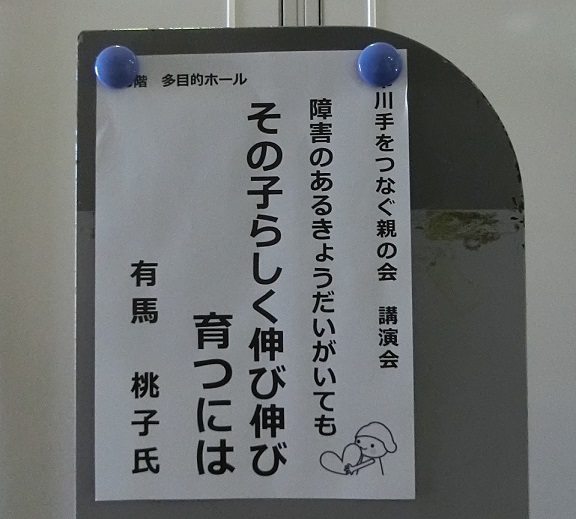 階　多目的ホール
川手をつなぐ親の会　講演会
障害のあるきょうだいがいても
その子らしく伸び伸び
育つには
有馬　桃子氏